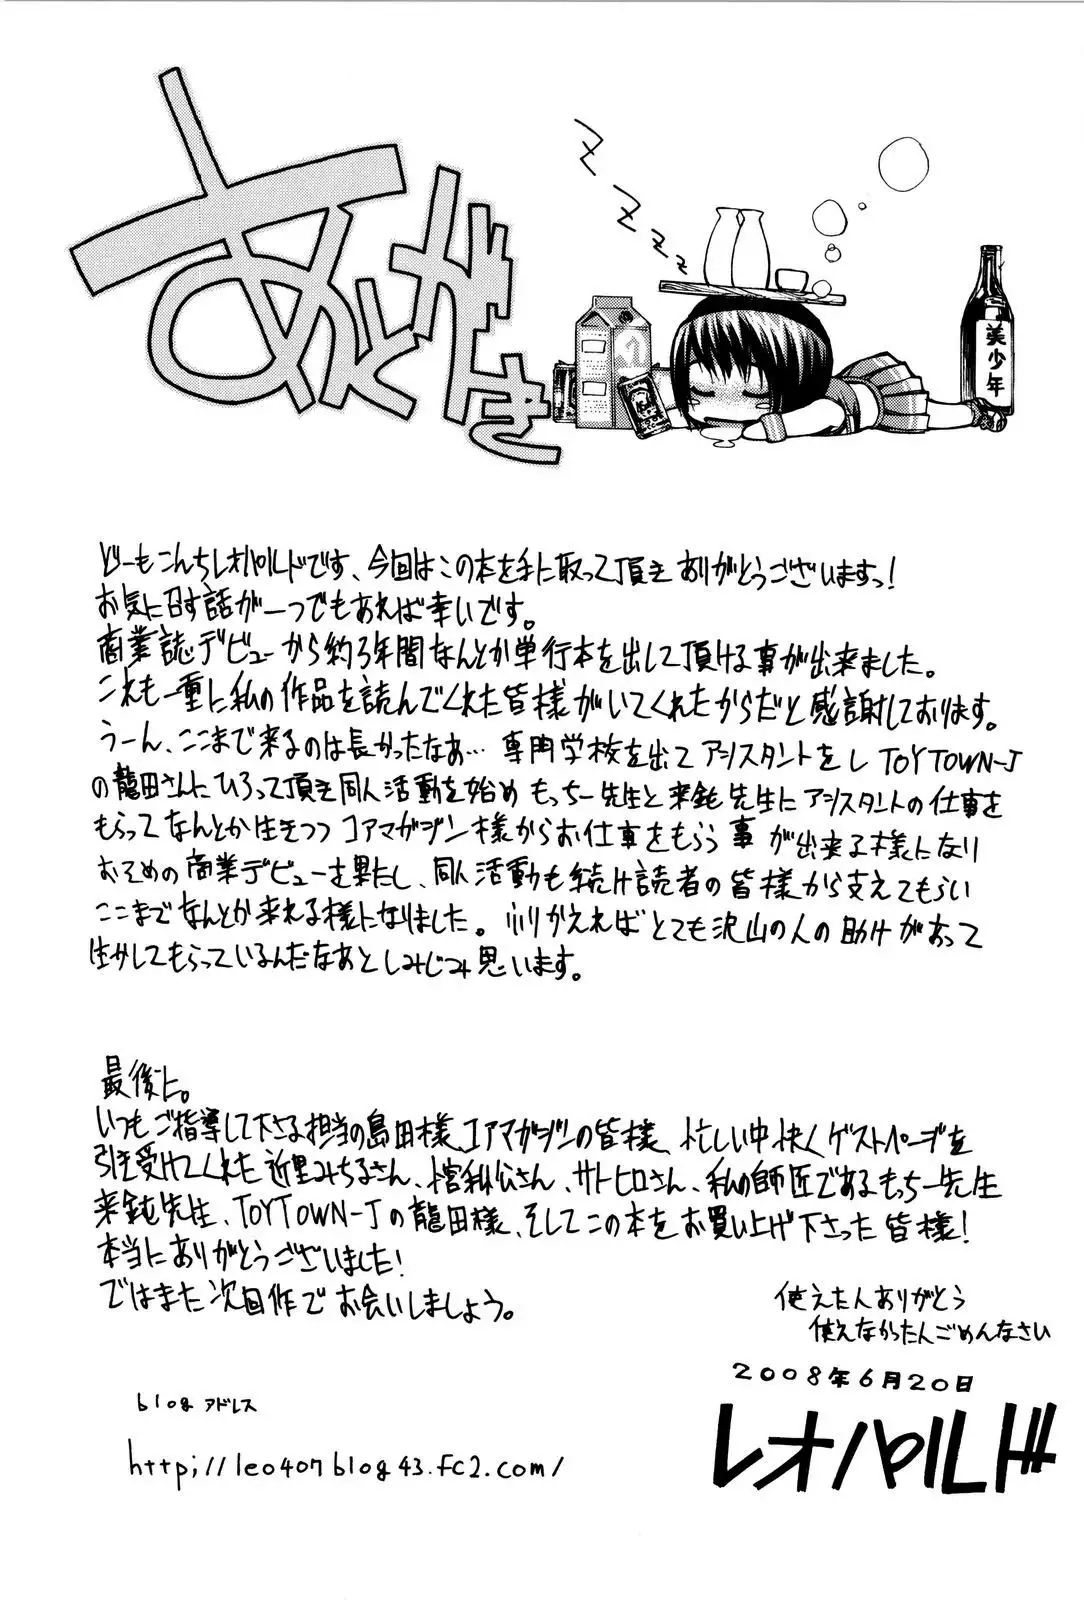 あとがき
zzzz
美少年
どーもこんちレオパルドです、今回はこの本を手に取って頂きありがとうございますっ!
お気に召す話が一つでもあれば幸いです。
商業誌デビューから約3年間なんとか単行本を出して頂ける事が出来ました。
これも一重に私の作品を読んでくれた皆様がいてくれたからだと感謝しております。
うーん、ここまで来るのは長かったなあ… 専門学校を出てアシスタントをし TOYTOWN-J
の龍田さんにひろって頂き同人活動を始め もっちー先生と来鈍先生にアシスタントの仕事を
もらってなんとか生きつつ コアマガジン様からお仕事をもらう事が出来る様になり
おそめの商業デビューを果たし、同人活動も続け読者の皆様から支えてもらい
ここまでなんとか来れる様になりました。ふりかえればとても沢山の人の助けがあって
生かしてもらっているんだなあとしみじみ思います。
最後に。
いつもご指導して下さる担当の島田様、コアマガジンの皆様、忙しい中快くゲストページを
引き受けてくれた近里みちるさん、サトヒロさん、私の師匠であるもっちー先生
来鈍先生、TOYTOWN-Jの龍田様、そしてこの本をお買い上げ下さった皆様!
本当にありがとうございました!
ではまた次回作でお会いしましょう。
使えたんありがとう
使えなかったんごめんなさい
2008年6月20日
レオパルド
blog アドレス
http;//leo407blog43.fc2.com/